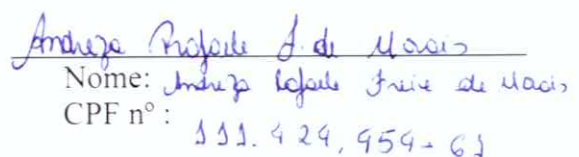 Andreza Rafaele F. de Morais
Nome: Andreza Rafaele Freire de Morais
CPF nº : 111.424.954-61